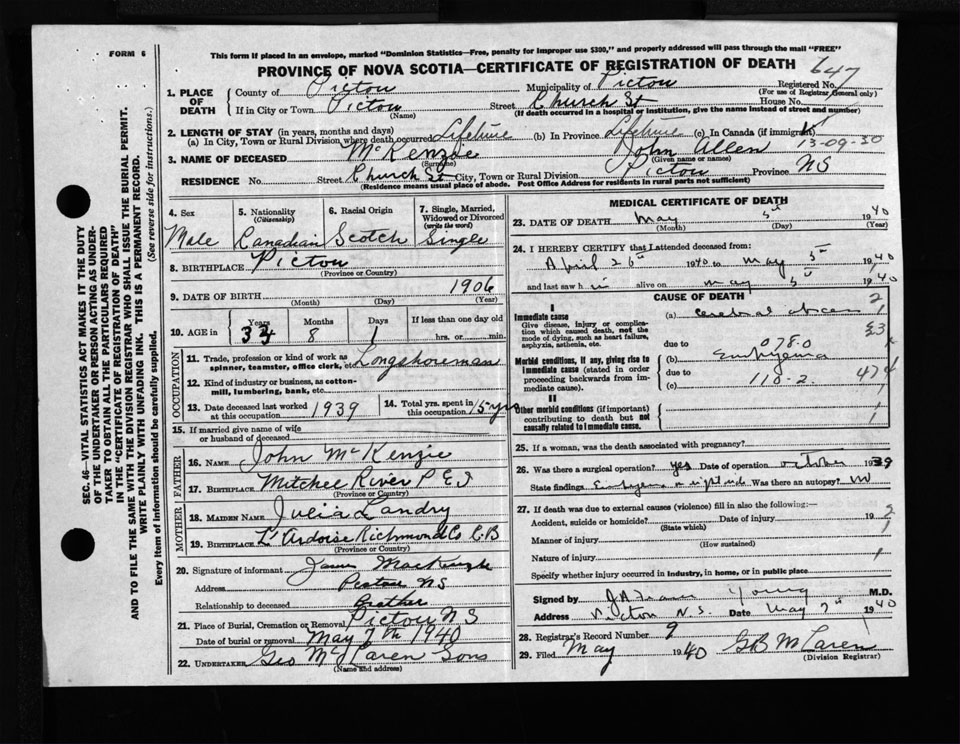 FORM 6
This form if placed in an envelope, marked "Dominion Statistics—Free, penalty for improper use $300," and properly addressed will pass through the mail "FREE"
PROVINCE OF NOVA SCOTIA—CERTIFICATE OF REGISTRATION OF DEATH
647
1. PLACE OF DEATH County of Pictou Municipality of Pictou Registered No.
(For use of Registrar General only)
If in City or Town Pictou Street Church St House No.
(Name) (If death occurred in a hospital or institution, give the name instead of street and number)
2. LENGTH OF STAY (in years, months and days)
(a) In City, Town or Rural Division where death occurred Lifetime (b) In Province Lifetime (c) In Canada (if immigrant)
13-09-30
3. NAME OF DECEASED McKenzie John Allen
(Surname) (Given name or names)
RESIDENCE No. Street Church St City, Town or Rural Division Pictou Province NS
(Residence means usual place of abode. Post Office Address for residents in rural parts not sufficient)
4. Sex 5. Nationality (Citizenship) 6. Racial Origin 7. Single, Married, Widowed or Divorced (write the word)
Male Canadian Scotch Single
8. BIRTHPLACE Pictou
(Province or Country)
9. DATE OF BIRTH 1906
(Month) (Day) (Year)
10. AGE in Years Months Days If less than one day old
8 1 hrs. or min.
OCCUPATION
11. Trade, profession or kind of work as spinner, teamster, office clerk, etc. Longshoreman
12. Kind of industry or business, as cotton-mill, lumbering, bank, etc.
13. Date deceased last worked at this occupation 1939 14. Total yrs. spent in this occupation 15 yrs
15. If married give name of wife or husband of deceased
FATHER
16. Name John McKenzie
17. Birthplace Mitchel River P E I
(Province or Country)
MOTHER
18. Maiden Name Julia Landry
19. Birthplace L'Ardoise Richmond Co C.B
(Province or Country)
20. Signature of informant James
Address NS
Relationship to deceased Brother
21. Place of Burial, Cremation or Removal Pictou N S
Date of burial or removal May 7th 1940
22. UNDERTAKER Geo McLaren Sons
(Name and address)
MEDICAL CERTIFICATE OF DEATH
23. DATE OF DEATH May 5th 1940
(Month) (Day) (Year)
24. I HEREBY CERTIFY that I attended deceased from:
April 26th 1940 to May 5th 1940
and last saw him alive on May 5th 1940
CAUSE OF DEATH
I
Immediate cause
Give disease, injury or complication which caused death, not the mode of dying, such as heart failure, asphyxia, asthenia, etc.
(a) Cerebral abcess
due to 078.0
Morbid conditions, if any, giving rise to immediate cause (stated in order proceeding backwards from immediate cause).
(b) Empyema
due to
(c) 110-2
II
Other morbid conditions (if important) contributing to death but not causally related to immediate cause.
25. If a woman, was the death associated with pregnancy?
26. Was there a surgical operation? yes Date of operation October 1939
State findings Empyema on right side Was there an autopsy? no
27. If death was due to external causes (violence) fill in also the following:—
Accident, suicide or homicide? Date of injury 19
(State which)
Manner of injury
(How sustained)
Nature of injury
Specify whether injury occurred in industry, in home, or in public place
Signed by Young M.D.
Address Pictou N.S. Date May 7th 1940
28. Registrar's Record Number 9
29. Filed May 1940 G B McLaren
(Division Registrar)
SEC. 46—VITAL STATISTICS ACT MAKES IT THE DUTY
OF THE UNDERTAKER OR PERSON ACTING AS UNDER-
TAKER TO OBTAIN ALL THE PARTICULARS REQUIRED
IN THE "CERTIFICATE OF REGISTRATION OF DEATH"
AND TO FILE THE SAME WITH THE DIVISION REGISTRAR WHO SHALL ISSUE THE BURIAL PERMIT.
WRITE PLAINLY WITH UNFADING INK. THIS IS A PERMANENT RECORD.
Every item of information should be carefully supplied. (See reverse side for instructions.)